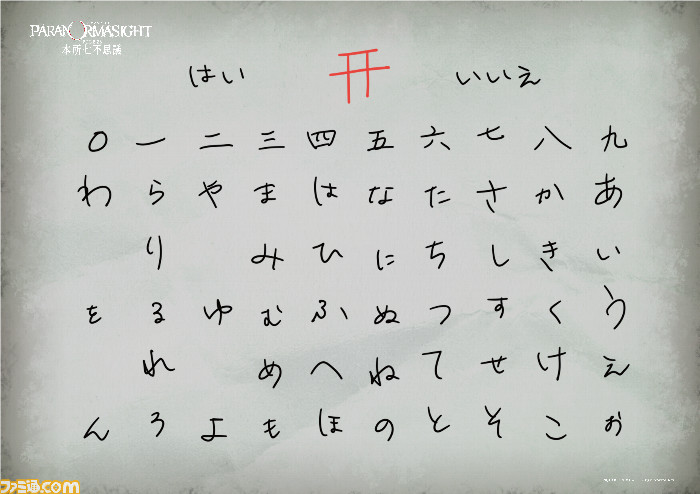 PARANORMASIGHT
本所七不思議
はい いいえ
0 一 二 三 四 五 六 七 八 九
わ ら や ま は な た さ か あ
り み ひ に ち し き い
を る ゆ む ふ ぬ つ す く う
れ め へ ね て せ け え
ん ろ よ も ほ の と そ こ お
ファミ通.com